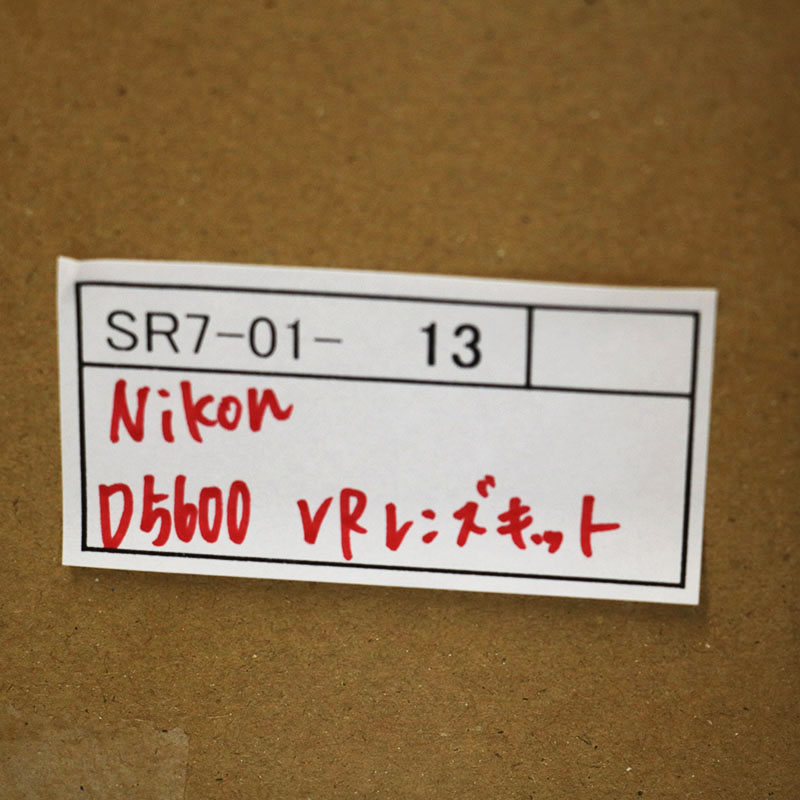 SR7-01- 13
Nikon
D5600 VRレンズキット